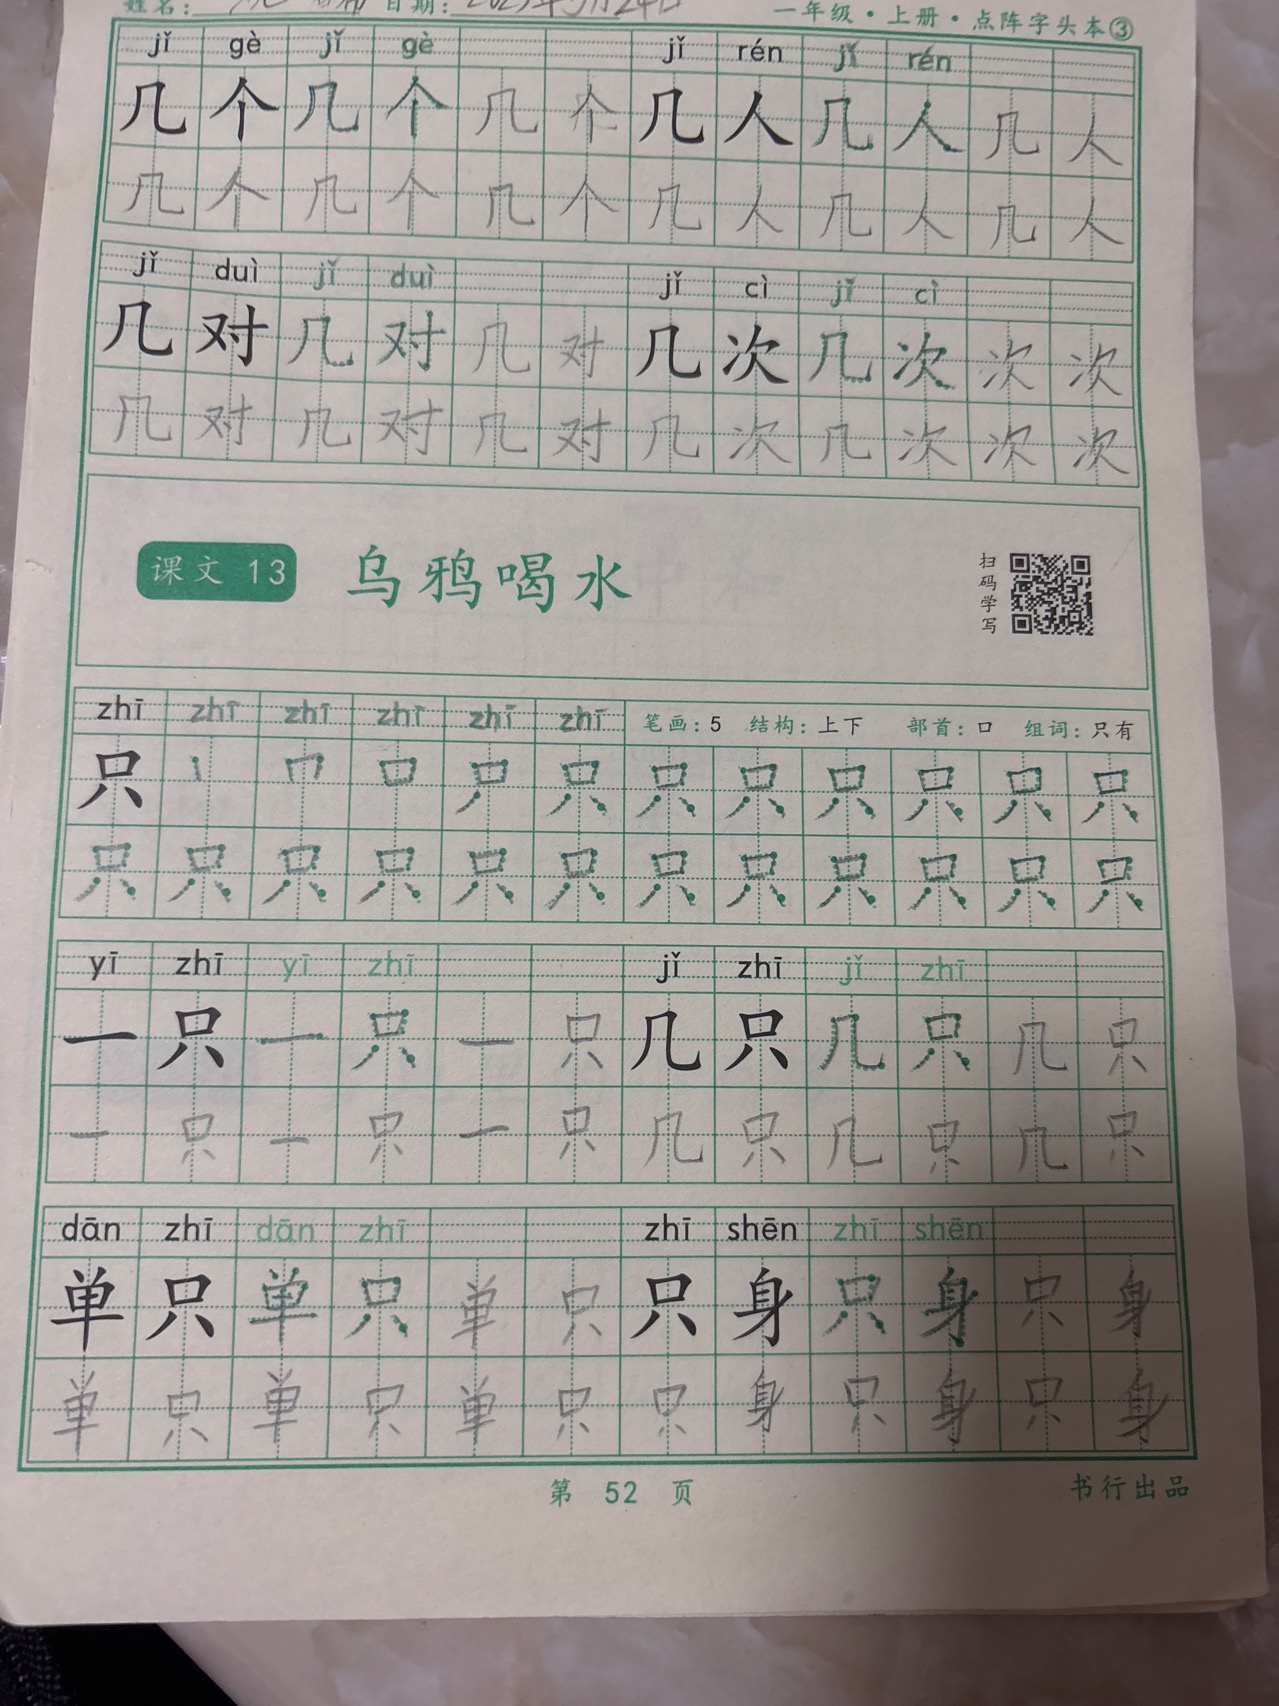 姓名: 日期:
一年级·上册·点阵字头本③
jǐ gè jǐ gè jǐ rén jǐ rén
几 个 几 个 几 个 几 人 几 人 几 人
几 个 几 个 几 个 几 人 几 人 几 人
jǐ duì jǐ duì jǐ cì jǐ cì
几 对 几 对 几 对 几 次 几 次 次 次
几 对 几 对 几 对 几 次 几 次 次 次
课文 13 乌鸦喝水
扫码学写
zhī zhī zhī zhī zhī zhī 笔画:5 结构:上下 部首:口 组词:只有
只 丨 冂 口 尸 只 只 只 只 只 只 只
只 只 只 只 只 只 只 只 只 只 只 只
yī zhī yī zhī jǐ zhī jǐ zhī
一 只 一 只 一 只 几 只 几 只 几 只
一 只 一 只 一 只 几 只 几 只 几 只
dān zhī dān zhī zhī shēn zhī shēn
单 只 单 只 单 只 只 身 只 身 只 身
单 只 单 只 单 只 只 身 只 身 只 身
第 52 页
书行出品